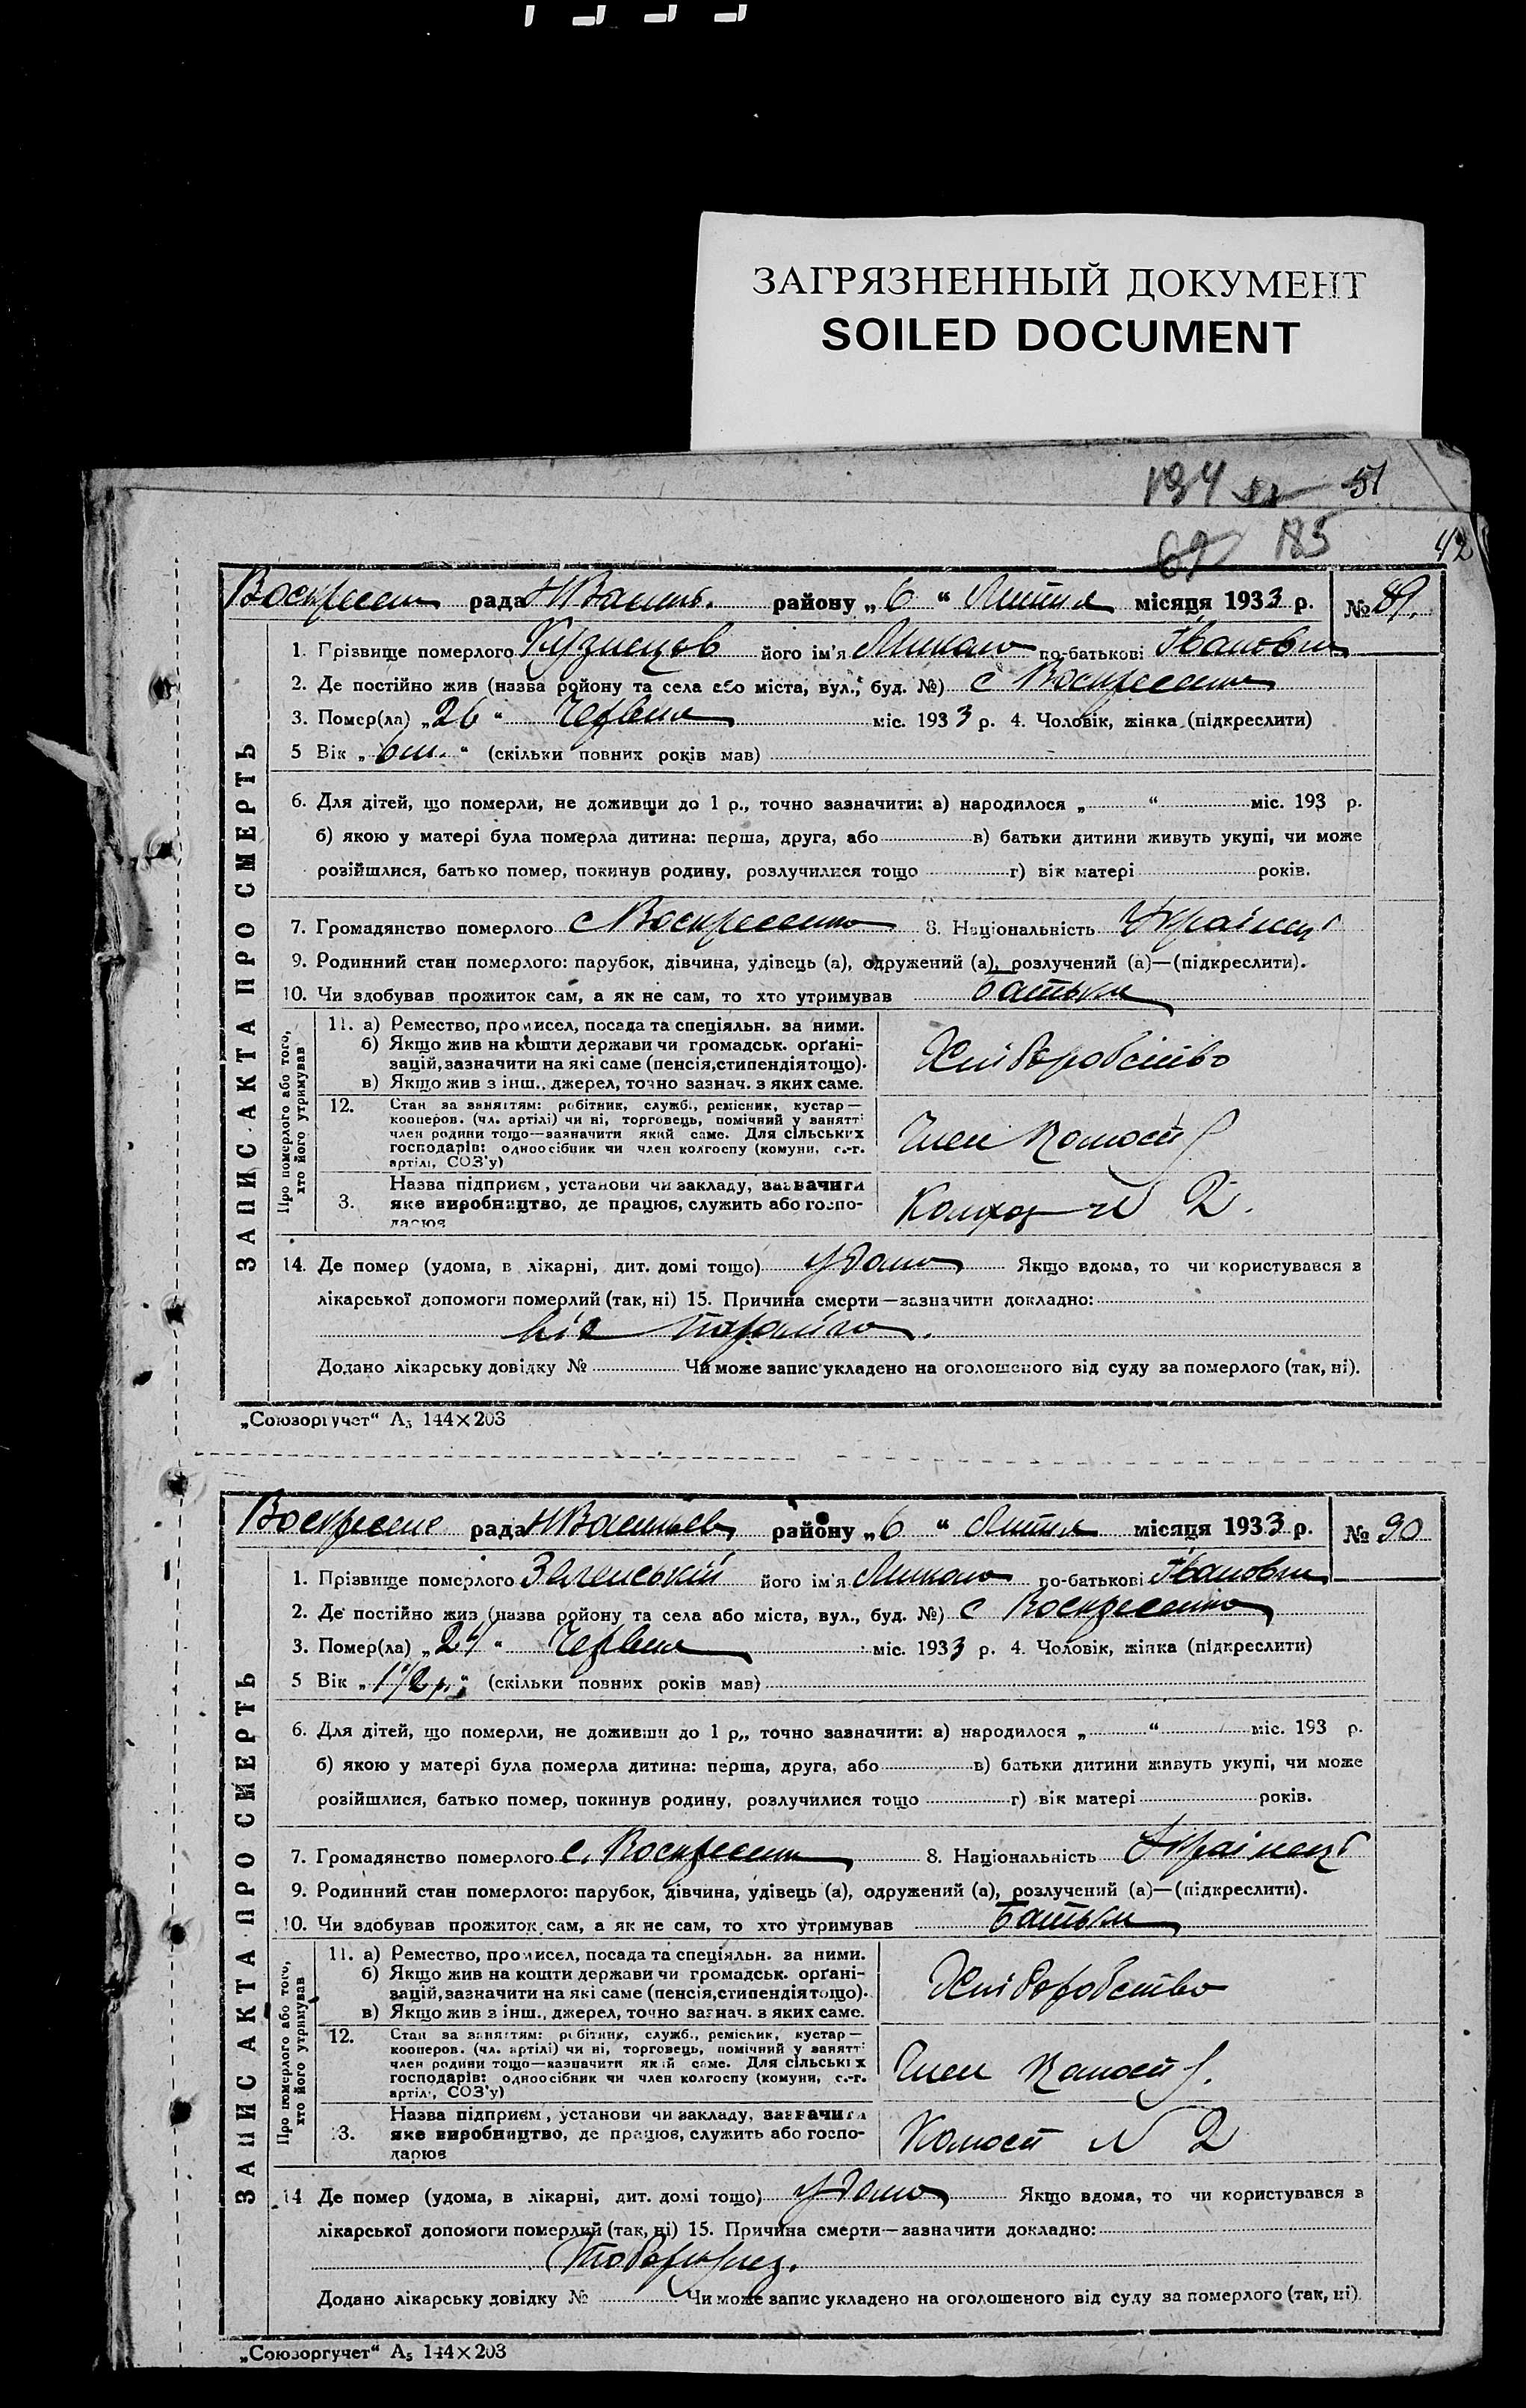 ЗАГРЯЗНЕННЫЙ ДОКУМЕНТ
SOILED DOCUMENT
194 51
69 185 42
рада район„ 6 “ Липня місяця 1933 р. № 89.
1. Прізвище померлого Кузнецов його ім'я Миколо по-батькові Іванович
2. Де постійно жив (назва ройону та села або міста, вул., буд. №) с Воскресенка
3. Помер(ла) „26“ Червня міс. 1933 р. 4. Чоловік, жінка (підкреслити)
5 Вік „ 6 “ (скільки повних років мав)
6. Для дітей, що померли, не доживши до 1 р., точно зазначити: а) народилося „ “ міс. 193 р.
б) якою у матері була померла дитина: перша, друга, або в) батьки дитини живуть укупі, чи може
розійшлися, батько помер, покинув родину, розлучилися тощо г) вік матері років.
7. Громадянство померлого с Воскресенка 8. Національність Українец
9. Родинний стан померлого: парубок, дівчина, удівець (а), одружений (а), розлучений (а)—(підкреслити).
10. Чи здобував прожиток сам, а як не сам, то хто утримував батьки
ЗАПИС АКТА ПРО СМЕРТЬ
Про померлого або того, хто його утримував
11. а) Ремество, промисел, посада та спеціяльн. за ними.
б) Якщо жив на кошти держави чи громадськ. орґані-
зацій, зазначити на які саме (пенсія, стипендія тощо).
в) Якщо жив з інш., джерел, точно зазнач. з яких саме.
Хліборобство
12. Стан за заняттям: робітник, служб., ремісник, кустар—
кооперов. (чл. артілі) чи ні, торговець, помічний у занятті
член родини тощо—зазначити який саме. Для сільських
господарів: одноосібник чи член колгоспу (комуни, с.-г.
артілі, СОЗ'у)
Член
3. Назва підприєм, установи чи закладу, зазначити
яке виробництво, де працює, служить або госпо-
дарює
N 2.
14. Де помер (удома, в лікарні, дит. домі тощо) удома Якщо вдома, то чи користувався з
лікарської допомоги померлий (так, ні) 15. Причина смерти—зазначити докладно:
Додано лікарську довідку № Чи може запис укладено на оголошеного від суду за померлого (так, ні).
„Союзоргучет“ А5 144×203
рада району „ 6 “ Липня місяця 1933 р. № 90
1. Прізвище померлого його ім'я Миколо по-батькові Іванович
2. Де постійно жив (назва ройону та села або міста, вул., буд. №) с Воскресенка
3. Помер(ла) „ “ Червня міс. 1933 р. 4. Чоловік, жінка (підкреслити)
5 Вік „ 1 1/2 р. “ (скільки повних років мав)
6. Для дітей, що померли, не доживши до 1 р., точно зазначити: а) народилося „ “ міс. 193 р.
б) якою у матері була померла дитина: перша, друга, або в) батьки дитини живуть укупі, чи може
розійшлися, батько помер, покинув родину, розлучилися тощо г) вік матері років.
7. Громадянство померлого с. Воскресенка 8. Національність Українец
9. Родинний стан померлого: парубок, дівчина, удівець (а), одружений (а), розлучений (а)—(підкреслити).
10. Чи здобував прожиток сам, а як не сам, то хто утримував батьки
ЗАПИС АКТА ПРО СМЕРТЬ
Про померлого або того, хто його утримував
11. а) Ремество, промисел, посада та спеціяльн. за ними.
б) Якщо жив на кошти держави чи громадськ. орґані-
зацій, зазначити на які саме (пенсія, стипендія тощо).
в) Якщо жив з інш., джерел, точно зазнач. в яких саме.
Хліборобство
12. Стан за заняттям: робітник, служб., ремісник, кустар—
кооперов. (чл. артілі) чи ні, торговець, помічний у занятті
член родини тощо—зазначити який саме. Для сільських
господарів: одноосібник чи член колгоспу (комуни, с.-г.
артілі, СОЗ'у)
Член
3. Назва підприєм, установи чи закладу, зазначити
яке виробництво, де працює, служить або госпо-
дарює
N 2
14 Де помер (удома, в лікарні, дит. домі тощо) удома Якщо вдома, то чи користувався з
лікарської допомоги померлий (так, ні) 15. Причина смерти—зазначити докладно:
Додано лікарську довідку № Чи може запис укладено на оголошеного від суду за померлого (так, ні)
„Союзоргучет“ А5 144×203